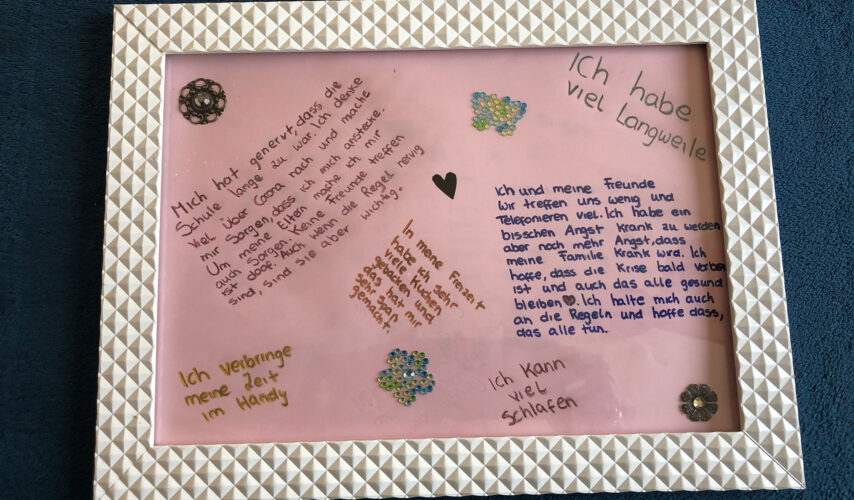 Mich hat genervt, dass die
Schule lange zu war. Ich denke
viel über Corona nach und mache
mir Sorgen, dass ich mich anstecke.
Um meine Eltern mache ich mir
auch Sorgen. Keine Freunde treffen
ist doof. Auch wenn die Regel nervig
sind, sind sie aber wichtig.
Ich habe
viel Langweile
Ich und meine Freunde
wir treffen uns wenig und
Telefonieren viel. Ich habe ein
bisschen Angst krank zu werden
aber noch mehr Angst, dass
meine Familie krank wird. Ich
hoffe, dass die Krise bald vorbei
ist und auch das alle gesund
bleiben♥. Ich halte mich auch
an die Regeln und hoffe dass,
das alle tun.
In meine Freizeit
habe ich sehr
viele Kuchen
gebacken und
das hat mir
sehr Spaß
gemacht.
Ich verbringe
meine Zeit
im Handy
Ich kann
viel
schlafen